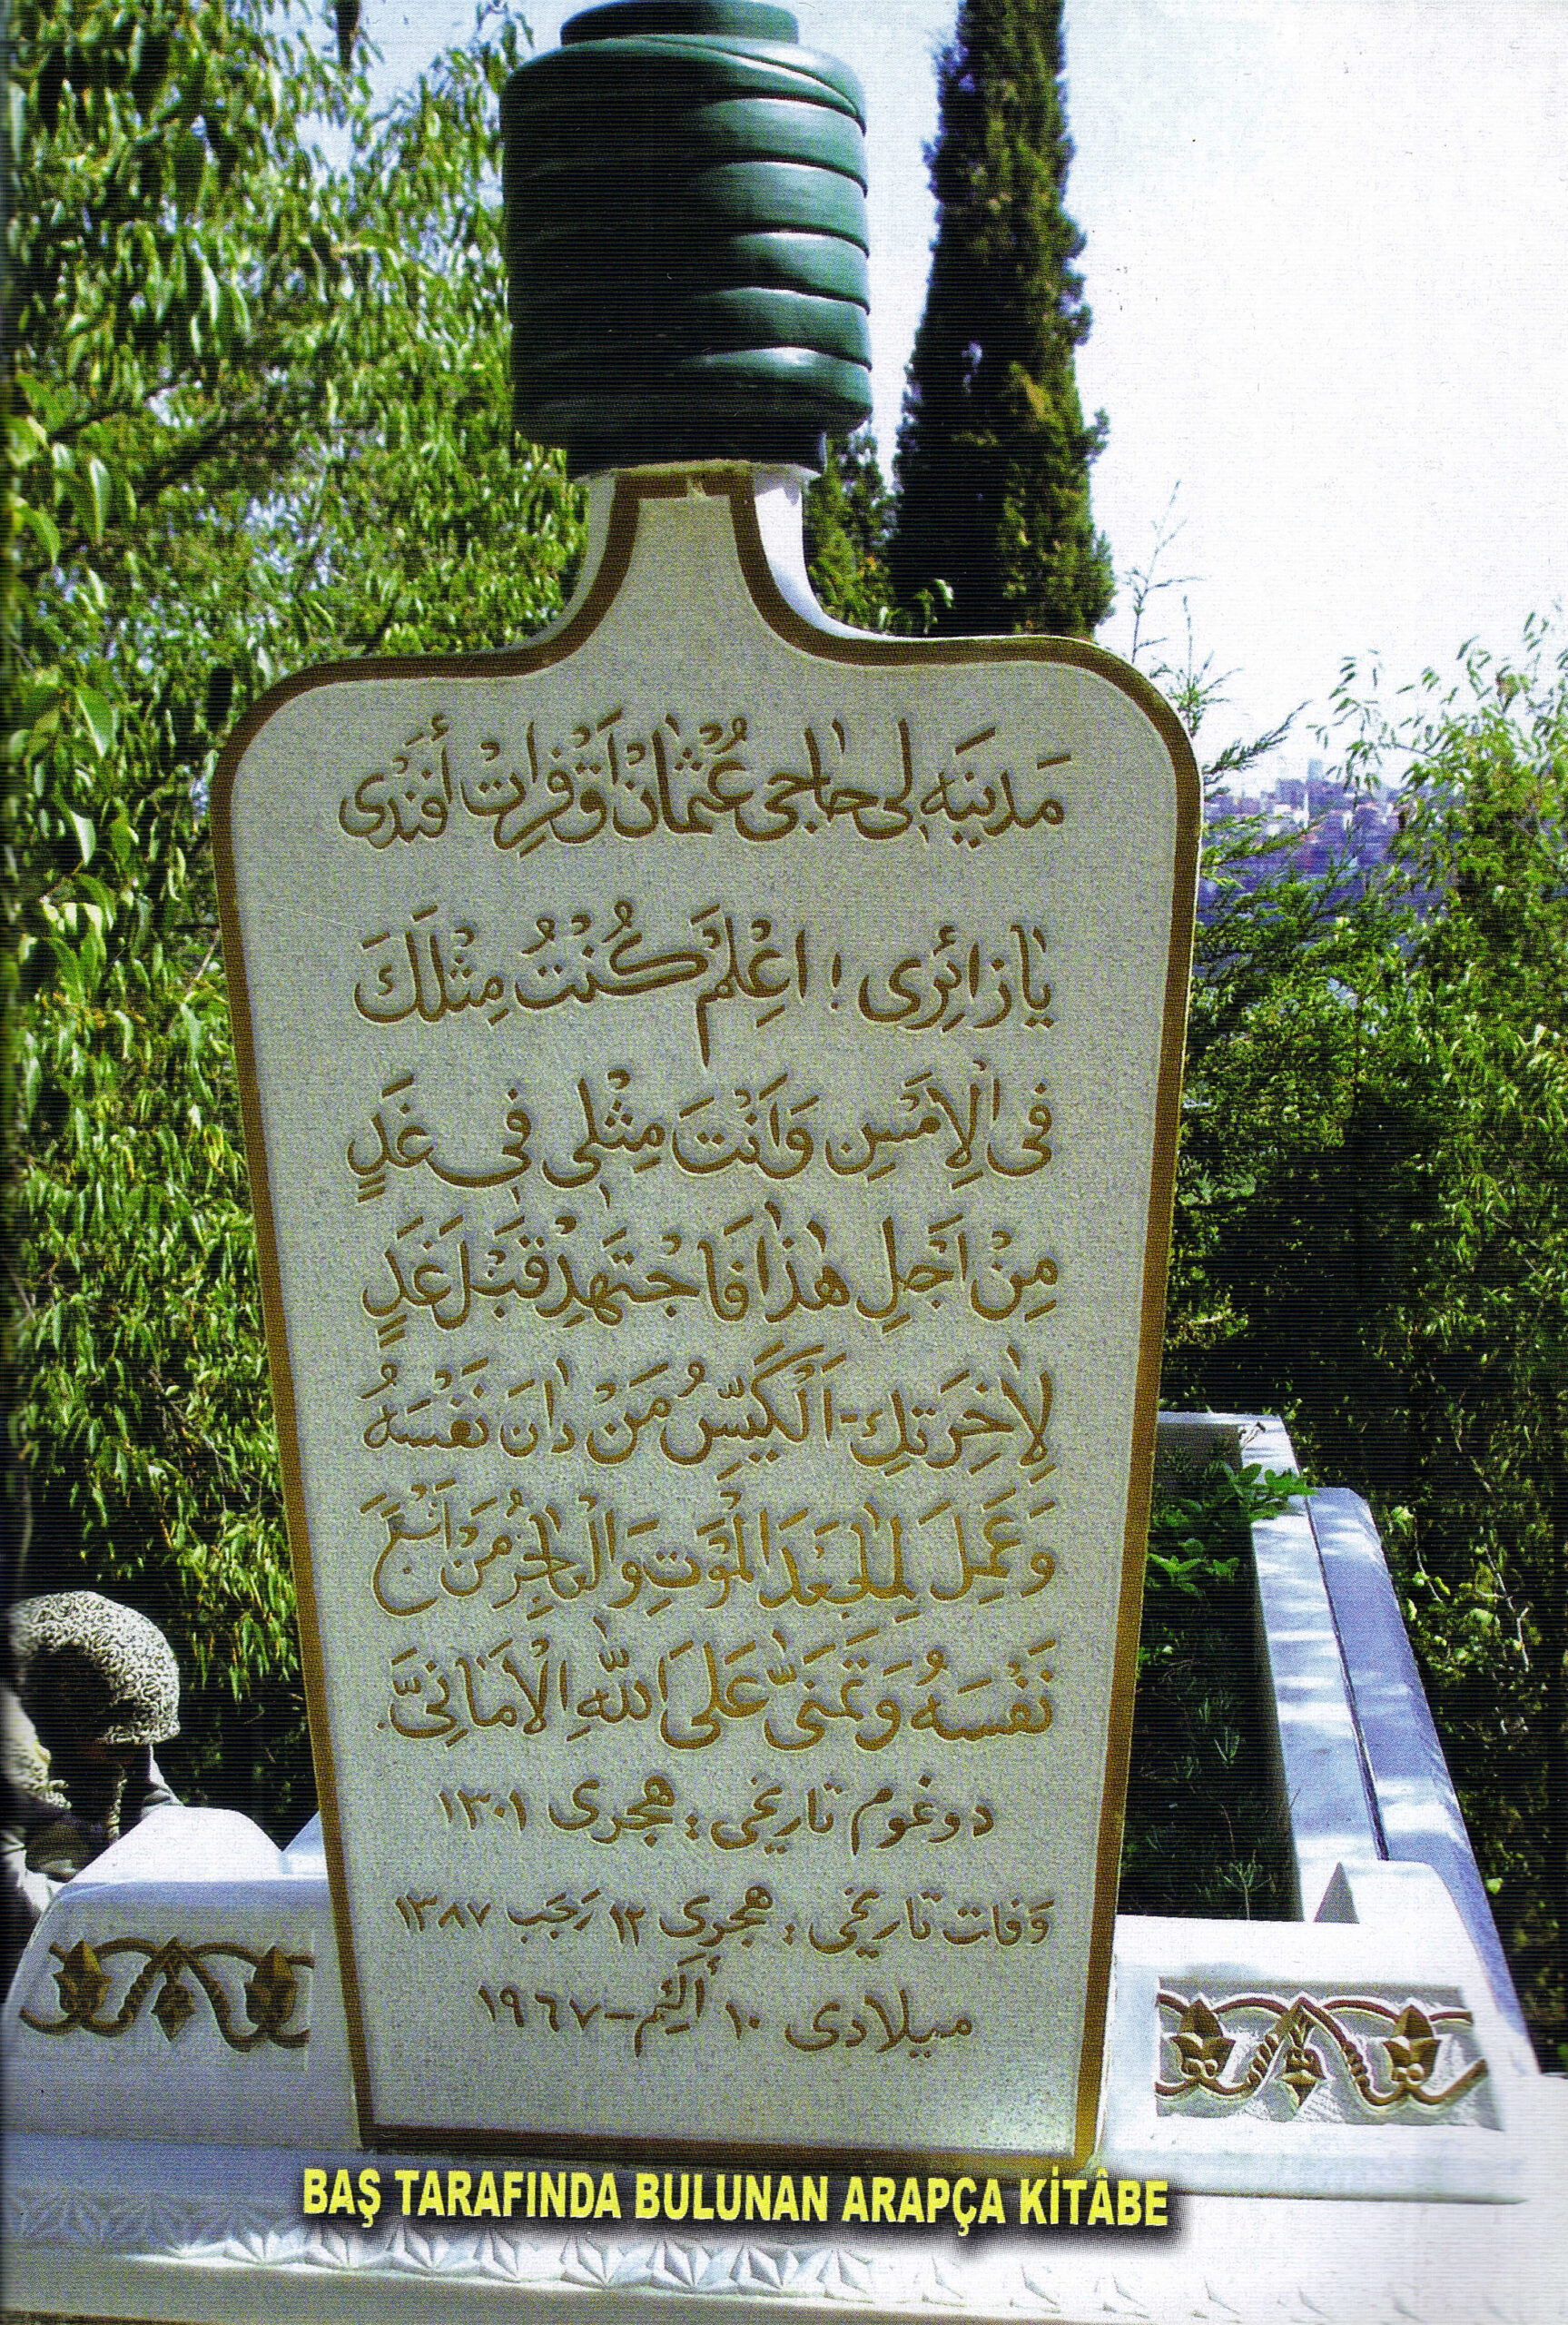 مَدِينَه لِى حَاجِى عُثْمَانْ آقْفِرَاتْ أَفَنْدِى
يَا زَائِرِى ! اعْلَمْ كُنْتُ مِثْلَكَ
فِى الْاَمْسِ وَاَنْتَ مِثْلِى فِى غَدٍ
مِنْ اَجْلِ هٰذَا فَاجْتَهِدْ قَبْلَ غَدٍ
لِاٰخِرَتِكَ - اَلْكَيِّسُ مَنْ دَانَ نَفْسَهُ
وَعَمِلَ لِمَا بَعْدَ الْمَوْتِ وَالْعَاجِزُ مَنْ اَتْبَعَ
نَفْسَهُ وَتَمَنَّى عَلَى اللّٰهِ الْاَمَانِىَّ.
دوغوم تاريخى : هجرى ١٣٠١
وَفات تاريخى : هجرى ١٢ رَجَب ١٣٨٧
ميلادى ١٠ أَكِيم - ١٩٦٧
BAŞ TARAFINDA BULUNAN ARAPÇA KİTÂBE